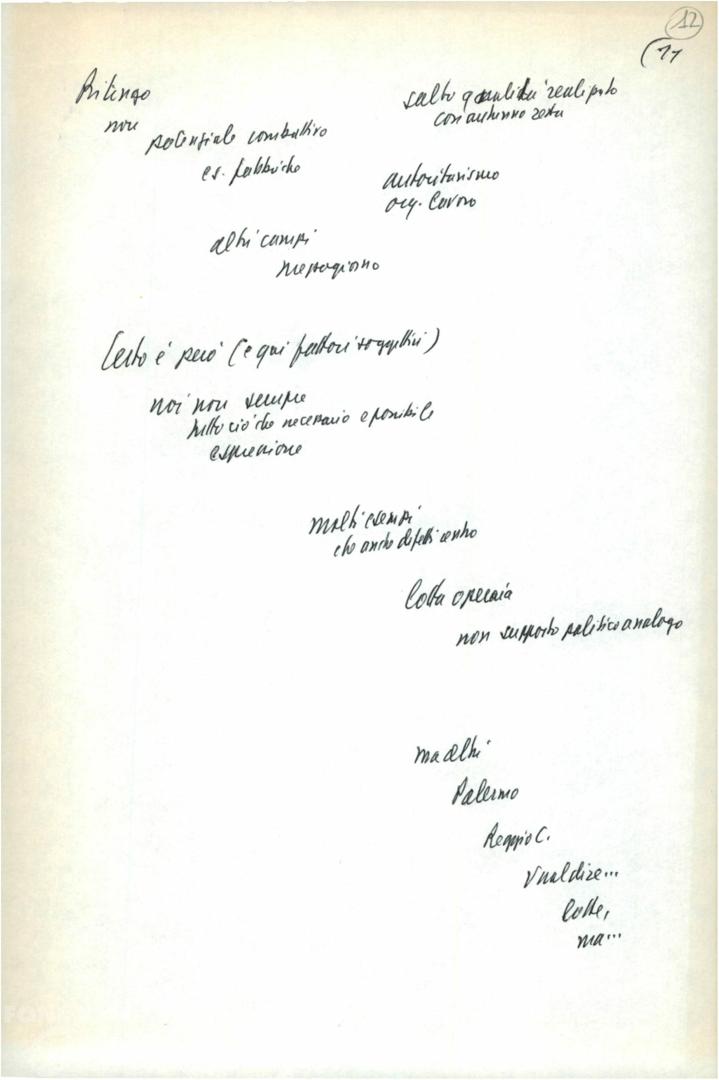 12
(11
Ritengo
non
potenziale combattivo
es. fabbriche
salto qualità realizzato
con autunno
autoritarismo
org. lavoro
altri campi
mezzogiorno
Certo è però (e qui fattori soggettivi)
noi non sempre
tutto ciò che necessario e possibile
espressione
molti esempi
che anche difetti centro
lotta operaia
non supporto politico analogo
ma altri
Palermo
Reggio C.
Vual dire...
lotte,
ma...